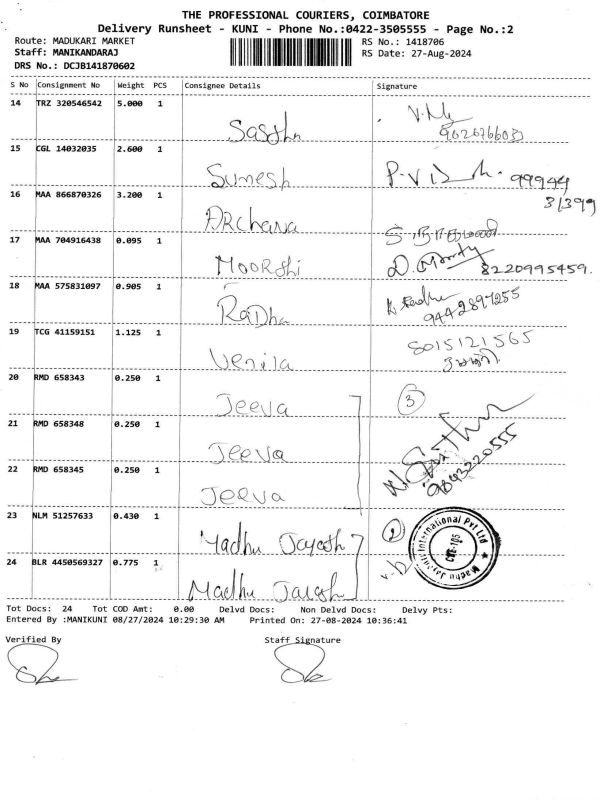 THE PROFESSIONAL COURIERS, COIMBATORE
Delivery Runsheet - KUNI - Phone No.:0422-3505555 - Page No.:2
Route: MADUKARI MARKET RS No.: 1418706
Staff: MANIKANDARAJ RS Date: 27-Aug-2024
DRS No.: DCJB141870602
S No Consignment No Weight PCS Consignee Details Signature
14 TRZ 320546542 5.000 1 Sasthu
15 CGL 14032035 2.600 1 Sumesh 99944
31399
16 MAA 866870326 3.200 1 Archana
17 MAA 704916438 0.095 1 Moorthi D. Morty 8220995459.
18 MAA 575831097 0.905 1 Radha K. Radha 9442897255
19 TCG 41159151 1.125 1 Venila 8015121565
20 RMD 658343 0.250 1 Jeeva 3
21 RMD 658348 0.250 1 Jeeva 9843220555
22 RMD 658345 0.250 1 Jeeva
23 NLM 51257633 0.430 1 Madhu Jayesh 2
24 BLR 4450569327 0.775 1 Madhu Jayesh
Madhu Jayanti International Pvt Ltd
Tot Docs: 24 Tot COD Amt: 0.00 Delvd Docs: Non Delvd Docs: Delvy Pts:
Entered By :MANIKUNI 08/27/2024 10:29:30 AM Printed On: 27-08-2024 10:36:41
Verified By Staff Signature